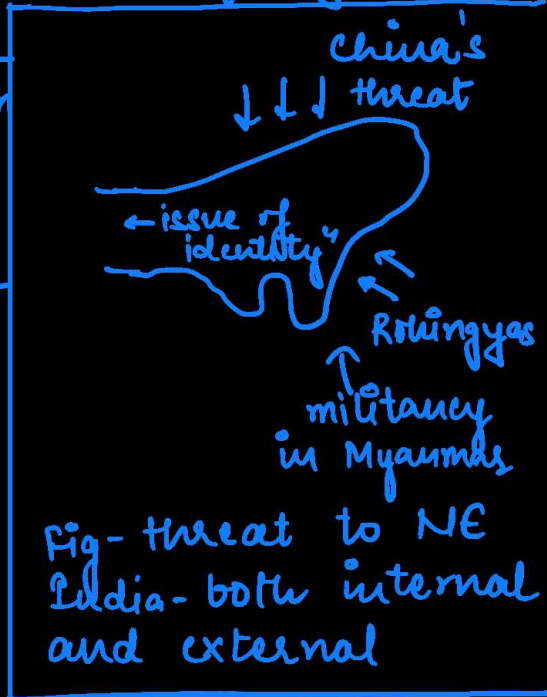 China's
threat
← issue of
identity"
Rohingyas
militancy
in Myanmar
Fig- threat to NE
India- both internal
and external